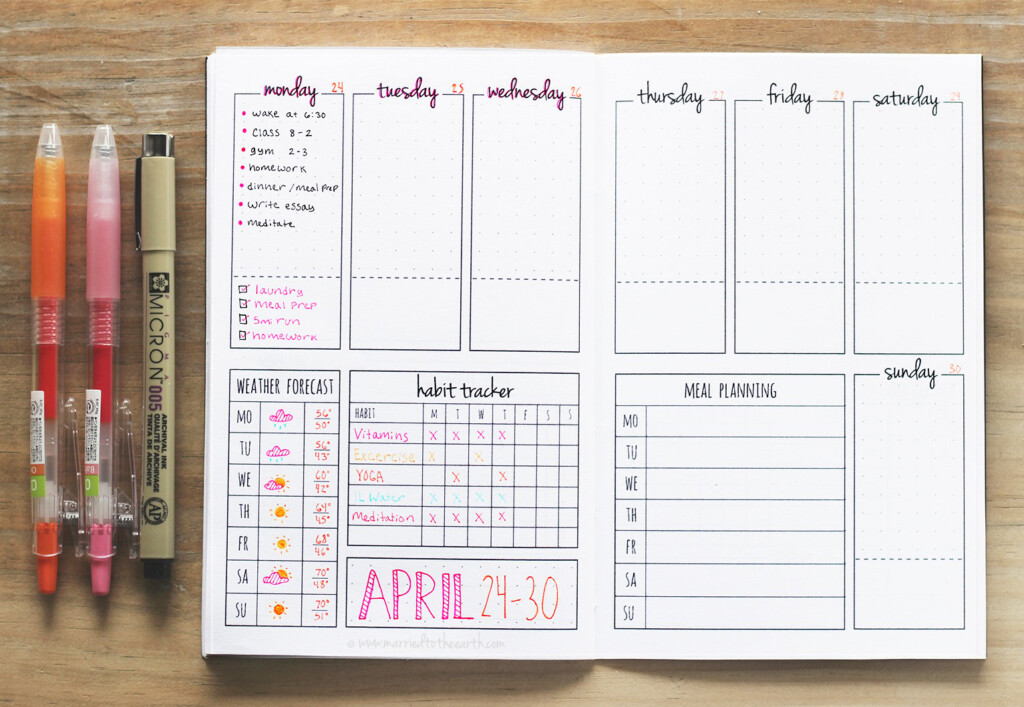 monday 24
wake at 6:30
class 8-2
gym 2-3
homework
dinner/meal prep
write essay
meditate
laundry
meal prep
5mi run
homework
tuesday 25
wednesday 26
thursday 27
friday 28
saturday 29
sunday 30
WEATHER FORECAST
MO 56° 50°
TU 56° 43°
WE 60° 42°
TH 64° 45°
FR 68° 46°
SA 70° 48°
SU 70° 51°
habit tracker
HABIT M T W T F S S
Vitamins X X X X
Excercise X X
YOGA X X
1L Water X X X X
Meditation X X X X
APRIL 24-30
MEAL PLANNING
MO
TU
WE
TH
FR
SA
SU
© www.marriedtotheearth.com
PIGMA
MICRON 005
ARCHIVAL INK
QUALITÉ D'ARCHIVAGE
TINTA DE ARCHIVE
AP